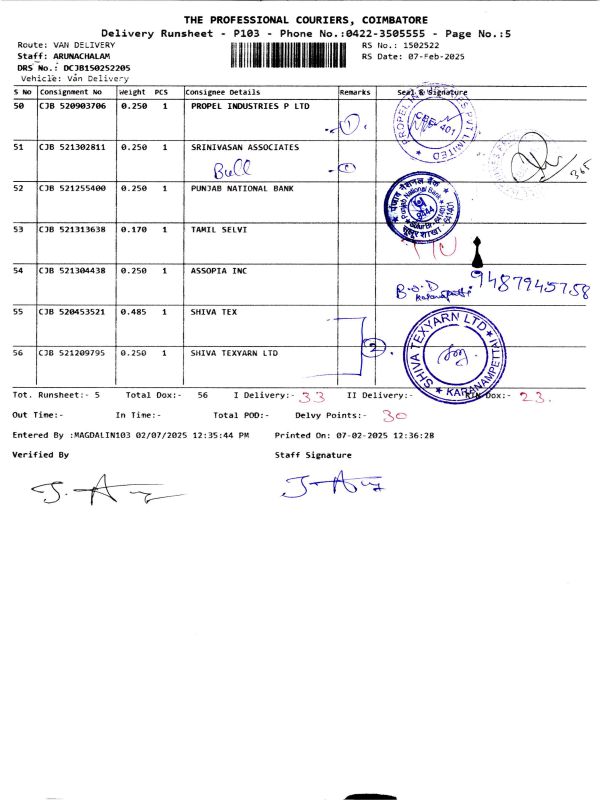 THE PROFESSIONAL COURIERS, COIMBATORE
Delivery Runsheet - P103 - Phone No.:0422-3505555 - Page No.:5
Route: VAN DELIVERY
RS No.: 1502522
Staff: ARUNACHALAM
RS Date: 07-Feb-2025
DRS No.: DCJB150252205
Vehicle: Van Delivery
S No Consignment No Weight PCS Consignee Details Remarks Seal & Signature
50 CJB 520903706 0.250 1 PROPEL INDUSTRIES P LTD
1
PROPEL INDUSTRIES PVT LIMITED
CBE-401
51 CJB 521302811 0.250 1 SRINIVASAN ASSOCIATES
Bull
365
52 CJB 521255400 0.250 1 PUNJAB NATIONAL BANK
पंजाब नैशनल बैंक
Punjab National Bank
641401
53 CJB 521313638 0.170 1 TAMIL SELVI
54 CJB 521304438 0.250 1 ASSOPIA INC
B.O.D
9487945758
55 CJB 520453521 0.485 1 SHIVA TEX
2
SHIVA TEXYARN LTD
KARANAMPETTAI
56 CJB 521209795 0.250 1 SHIVA TEXYARN LTD
Tot. Runsheet:- 5 Total Dox:- 56 I Delivery:- 33 II Delivery:- Dox:- 23.
Out Time:- In Time:- Total POD:- Delvy Points:- 30
Entered By :MAGDALIN103 02/07/2025 12:35:44 PM Printed On: 07-02-2025 12:36:28
Verified By Staff Signature